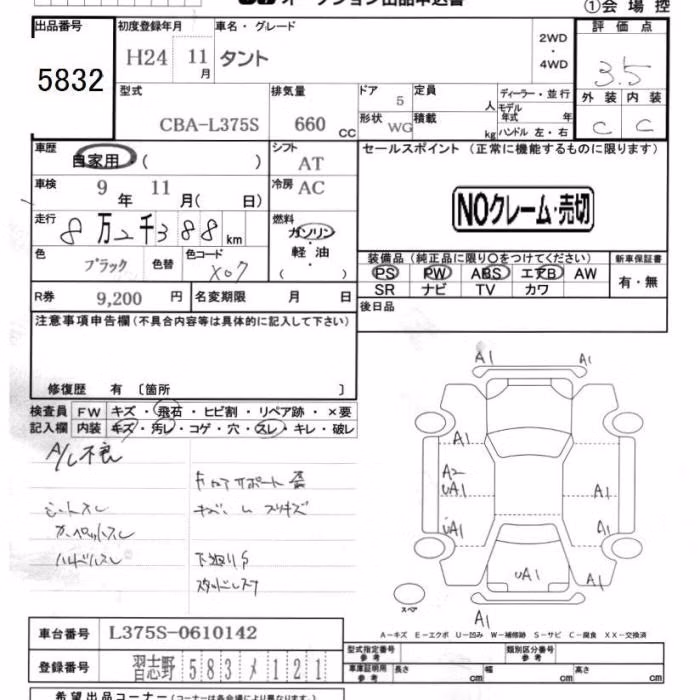 オークション出品申込書
①会場控
出品番号
5832
初度登録年月
H24 11月
車名・グレード
タント
2WD
・
4WD
評価点
3.5
外装 内装
C C
型式
CBA-L375S
排気量
660 CC
ドア
5
定員
人
ディーラー・並行
モデル年式 年
形状
WG
積載
kg
ハンドル 左・右
車歴
自家用 ( )
シフト
AT
車検
9年 11月( 日)
冷房
AC
走行
8万2千388km
燃料
ガソリン
軽油
( )
色
ブラック
色替
色コード
X07
R券
9,200円
名変期限 月 日
セールスポイント(正常に機能するものに限ります)
NOクレーム・売切
装備品(純正品に限り〇をつけてください)
PS PW ABS エアB AW
SR ナビ TV カワ
新車保証書
有・無
後日品
注意事項申告欄(不具合内容等は具体的に記入して下さい)
修復歴 有 〔箇所 〕
検査員記入欄
FW キズ・飛石・ヒビ割・リペア跡・×要
内装 キズ・汚レ・コゲ・穴・スレ・キレ・破レ
A/L不良
シートスレ
カーペットスレ
ハンドルスレ
下廻りS
A1 A1
A1
A2
UA1 A1
UA1 A1
UA1 A1
A1
スペア
A－キズ E－エクボ U－凹み W－補修跡 S－サビ C－腐食 XX－交換済
車台番号
L375S-0610142
登録番号
習志野 583 メ 121
型式指定番号
参考
類別区分番号
参考
車庫証明用
参考
長さ cm
幅 cm
高さ cm
希望出品コーナー(コーナーは各会場により異なります)